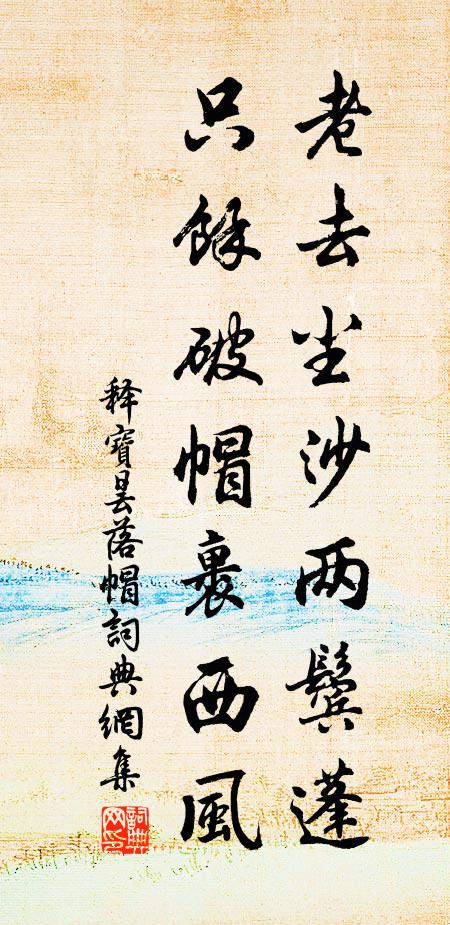 老去尘沙两鬓蓬
只餘破帽裹西風
释寶曇落帽詞典網集
詞典网印